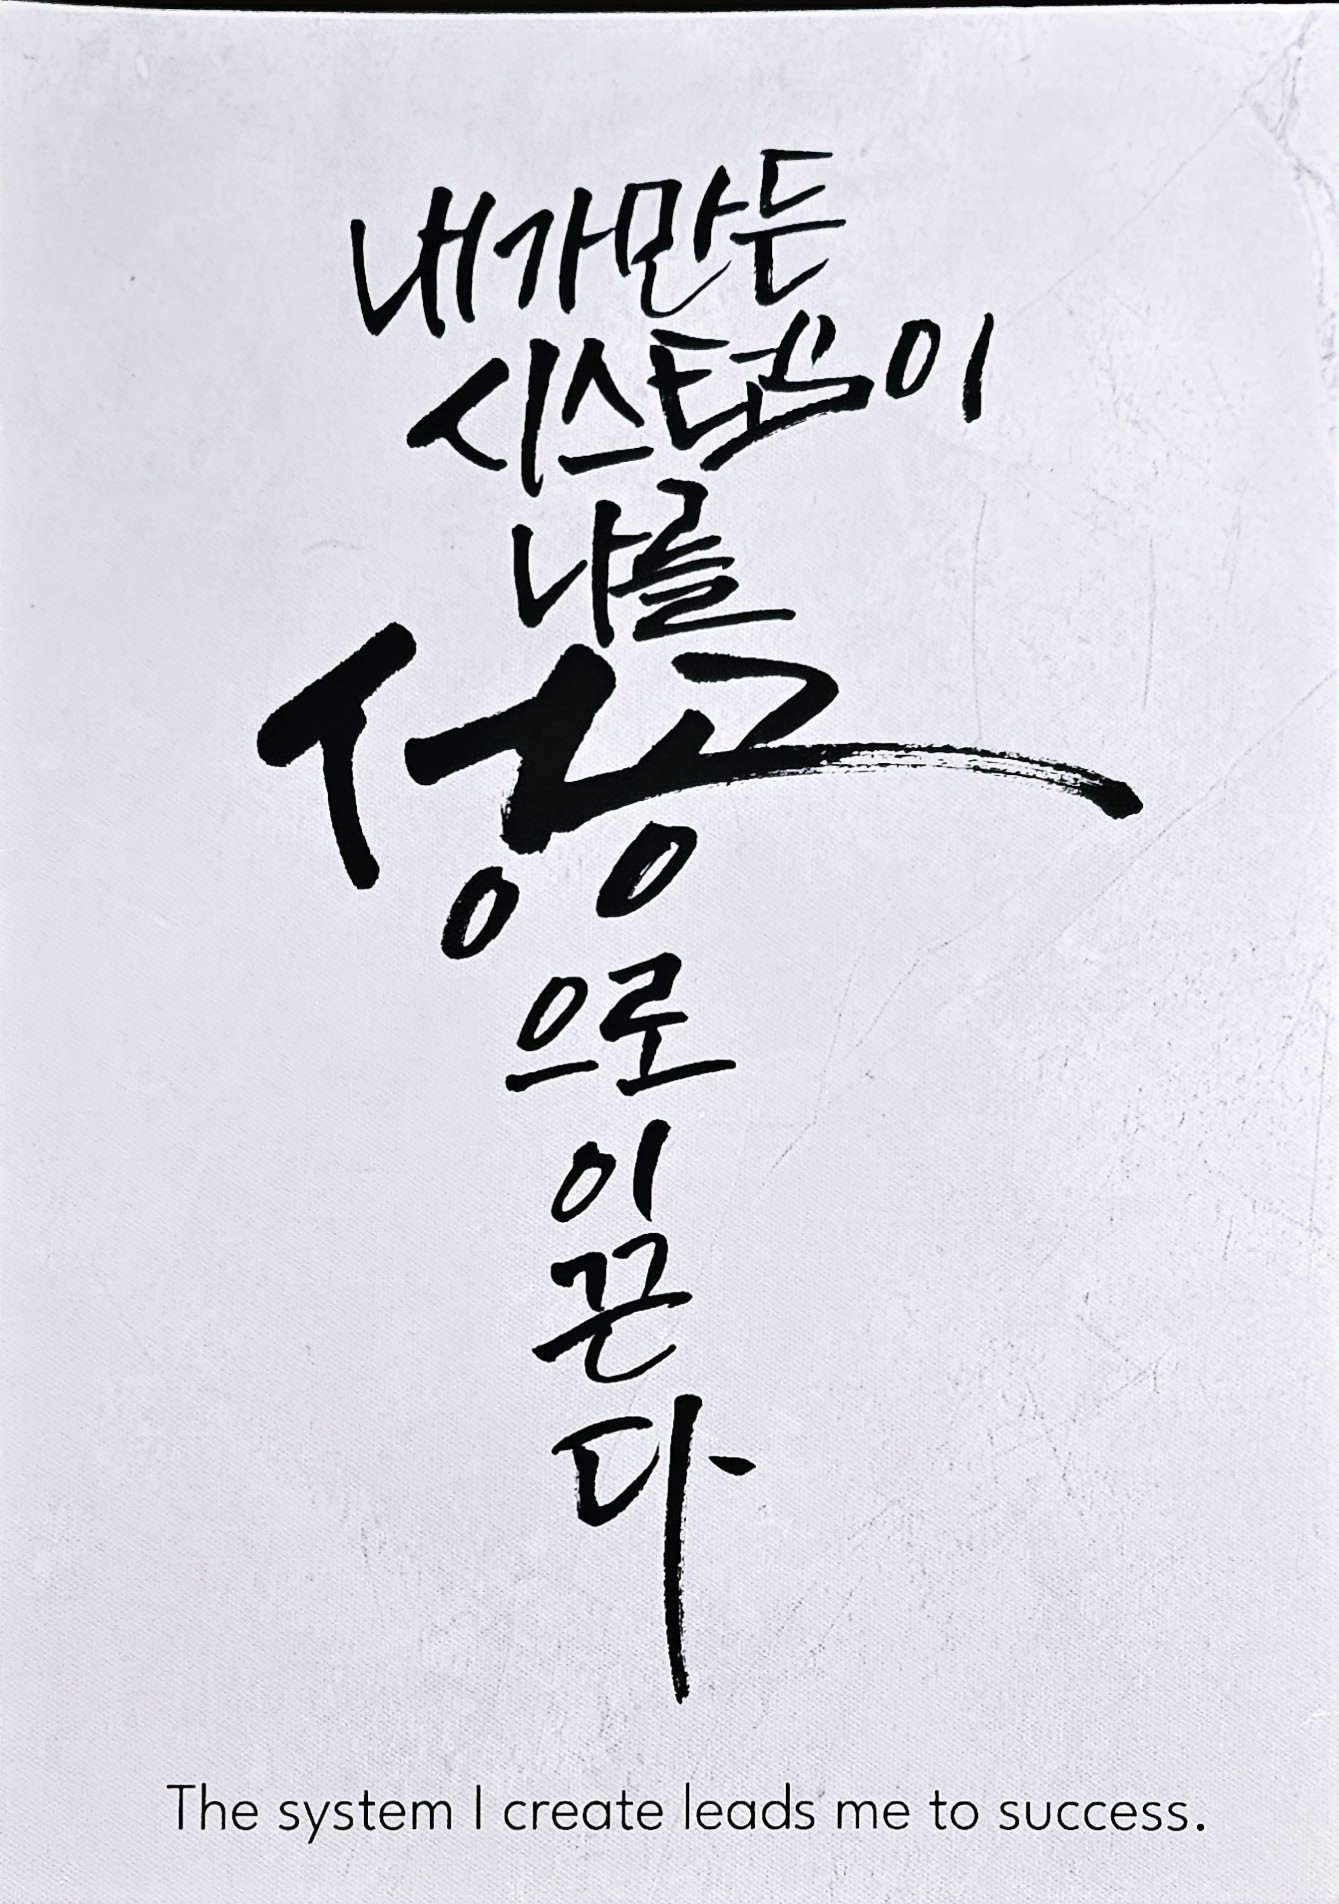 내가만든
시스템이
나를
성공
으로
이
끈
다
The system I create leads me to success.